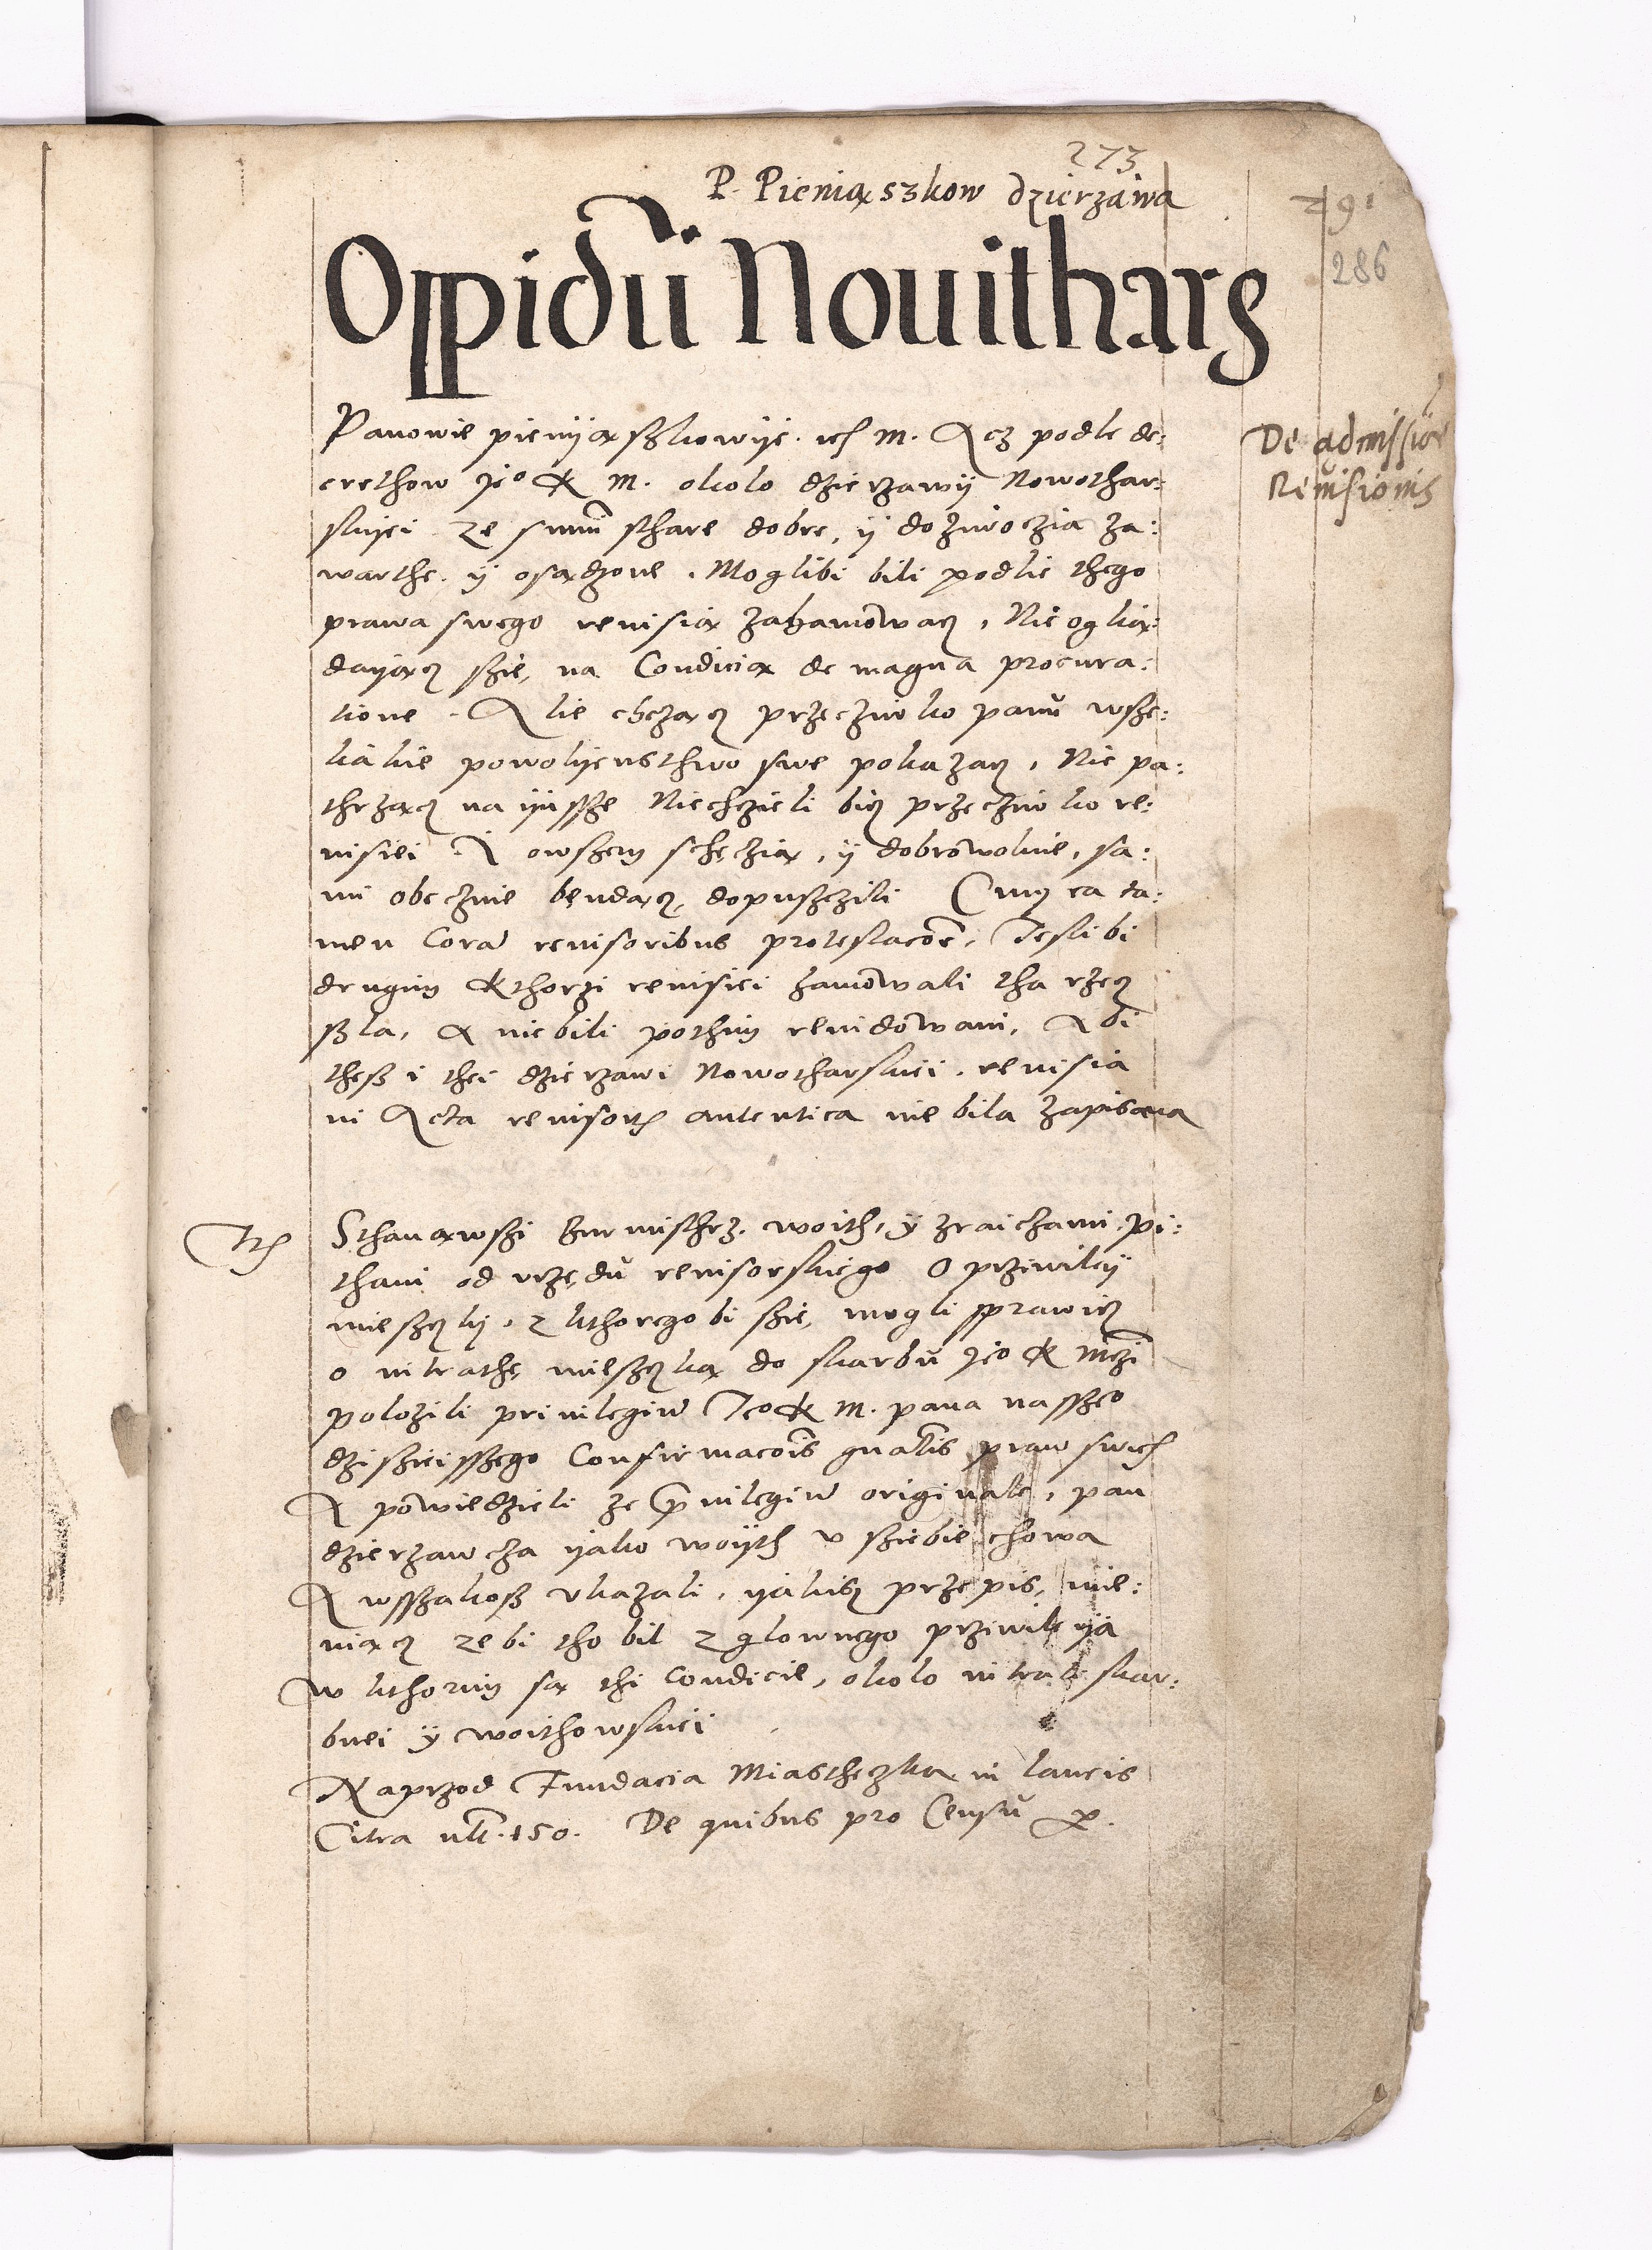 273
P. Pieniąszkow dzierzawa
291
286
Oppidū Nouitharg
De admissione
Reuisionis
Panowie pieniąszkowye. ich m. Acz podle de:
crethow Jeo K M. okolo dzierzawy Nowothar:
skyei ze summ sthare dobre, y dozywoczia za:
warthe. y osądzone. Moglibi bili podlie thego
prawa swego reuisią zahamowacz, Nie oglią:
dayącz szie, na Condicią de magna procura:
tione. Alie chcząncz przeczywko panu wsze:
liakie powolyenstwo swe pokazacz, Nie pa:
thrzącz na ynssze Niechczieli bicz przeczywko re:
uisiei. I owszem schęczią, y dobrowolnie, sa:
mi obecznie będącz, dopusczili Cum ea ta:
men Corā reuisoribus protestacōe, Jeslibi
drugim kthorzi reuisiei hamowali tha rzecz
szla, a nie bili pothim reuidowani, Abi
thesz i thei dzierzawi Nowotharskiei, reuisia
in Acta reuisorū autentica nie bila zapisana
Sthanąwszi burmisthrz, woith, y zraiczami, pi:
thani od vrzędu reuisorskiego O przywiley
mieszczky, z kthoregobi szie, mogli sprawicz
o intrathę mieszczką do skarbu Jeo K Mczi
polozili priuilegiū Jeo K m. pana nasszeo
dzisieisszego Confirmacōis gnalis praw swich
A powiedzieli ze priuilegiū originale, pan
dzierzawcza yako woyth v sziebie chowa
A wsszakosz vkazali, yakisz przepis, mie:
niącz zebi tho bil z glownego prziwileya
w kthorim są thi Condicie, okolo intrati skar:
bnei y woithowskiei
Naprzod Fundacia Miastheczka in laneis
Citra vlt. 150. De quibus pro Censu